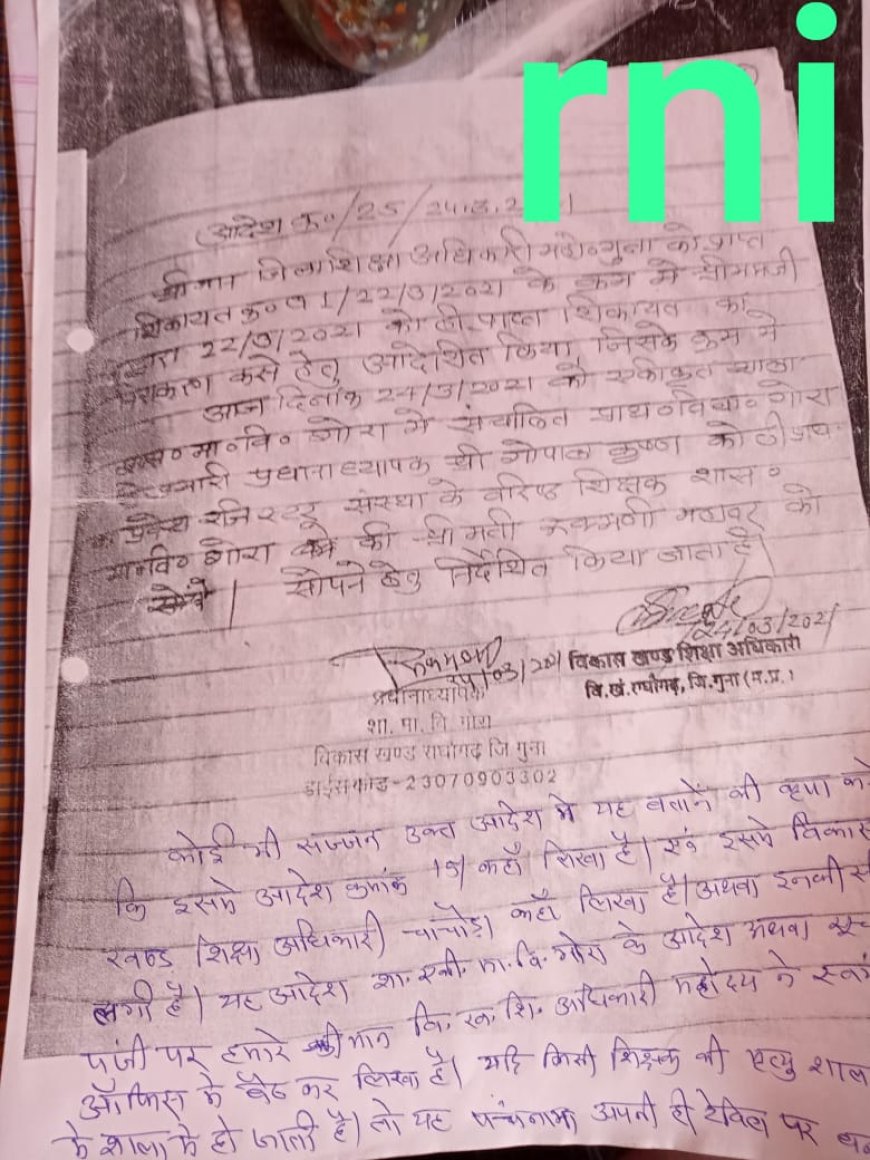 rni
आदेश क्र०/25/24.3.2021
श्रीमान जिला शिक्षा अधिकारी महो० गुना को प्राप्त
शिकायत क्र० 1/22/3/2021 के क्रम में श्रीमानजी
द्वारा 22/3/2021 को ही प्राप्त शिकायत का
निराकरण करने हेतु आदेशित किया, जिसके क्रम में
आज दिनांक 24/3/2021 को एकीकृत शाला
शास० मा० वि० गोरा में संचालित प्राथ० विद्या० गोरा
प्रभारी प्रधानाध्यापक श्री गोपाल कृष्ण कोली
प्रवेश रजिस्टर संस्था के वरिष्ठ शिक्षक शास०
मा० वि० गोरा की श्रीमती रूकमणी को
सौंपने हेतु निर्देशित किया जाता है।
24/03/2021
24/03/2021 विकास खण्ड शिक्षा अधिकारी
वि.खं. राघोगढ़, जि.गुना (म.प्र.)
प्रधानाध्यापक
शा. मा. वि. गोरा
विकास खण्ड राघोगढ़ जि गुना
डाईसकोड-23070903302
कोई भी सज्जन उक्त आदेश मे यह बताने की कृपा करे
कि इसमे आदेश क्रमांक 19/ कहाँ लिखा है। एवं इसमे विकास
खण्ड शिक्षा अधिकारी चाचौड़ा कहाँ लिखा है। अथवा इनकी
लगी है। यह आदेश शा. एकी. मा. वि. गोरा के आदेश अथवा
पंजी पर हमारे श्रीमान वि. ख. शि. अधिकारी महोदय ने स्वयं
ऑफिस मे बैठ कर लिखा है। यदि किसी शिक्षक की मृत्यु शाला
मे शाला मे हो जाती है। तो यह पंचनामा अपनी ही टेविल पर